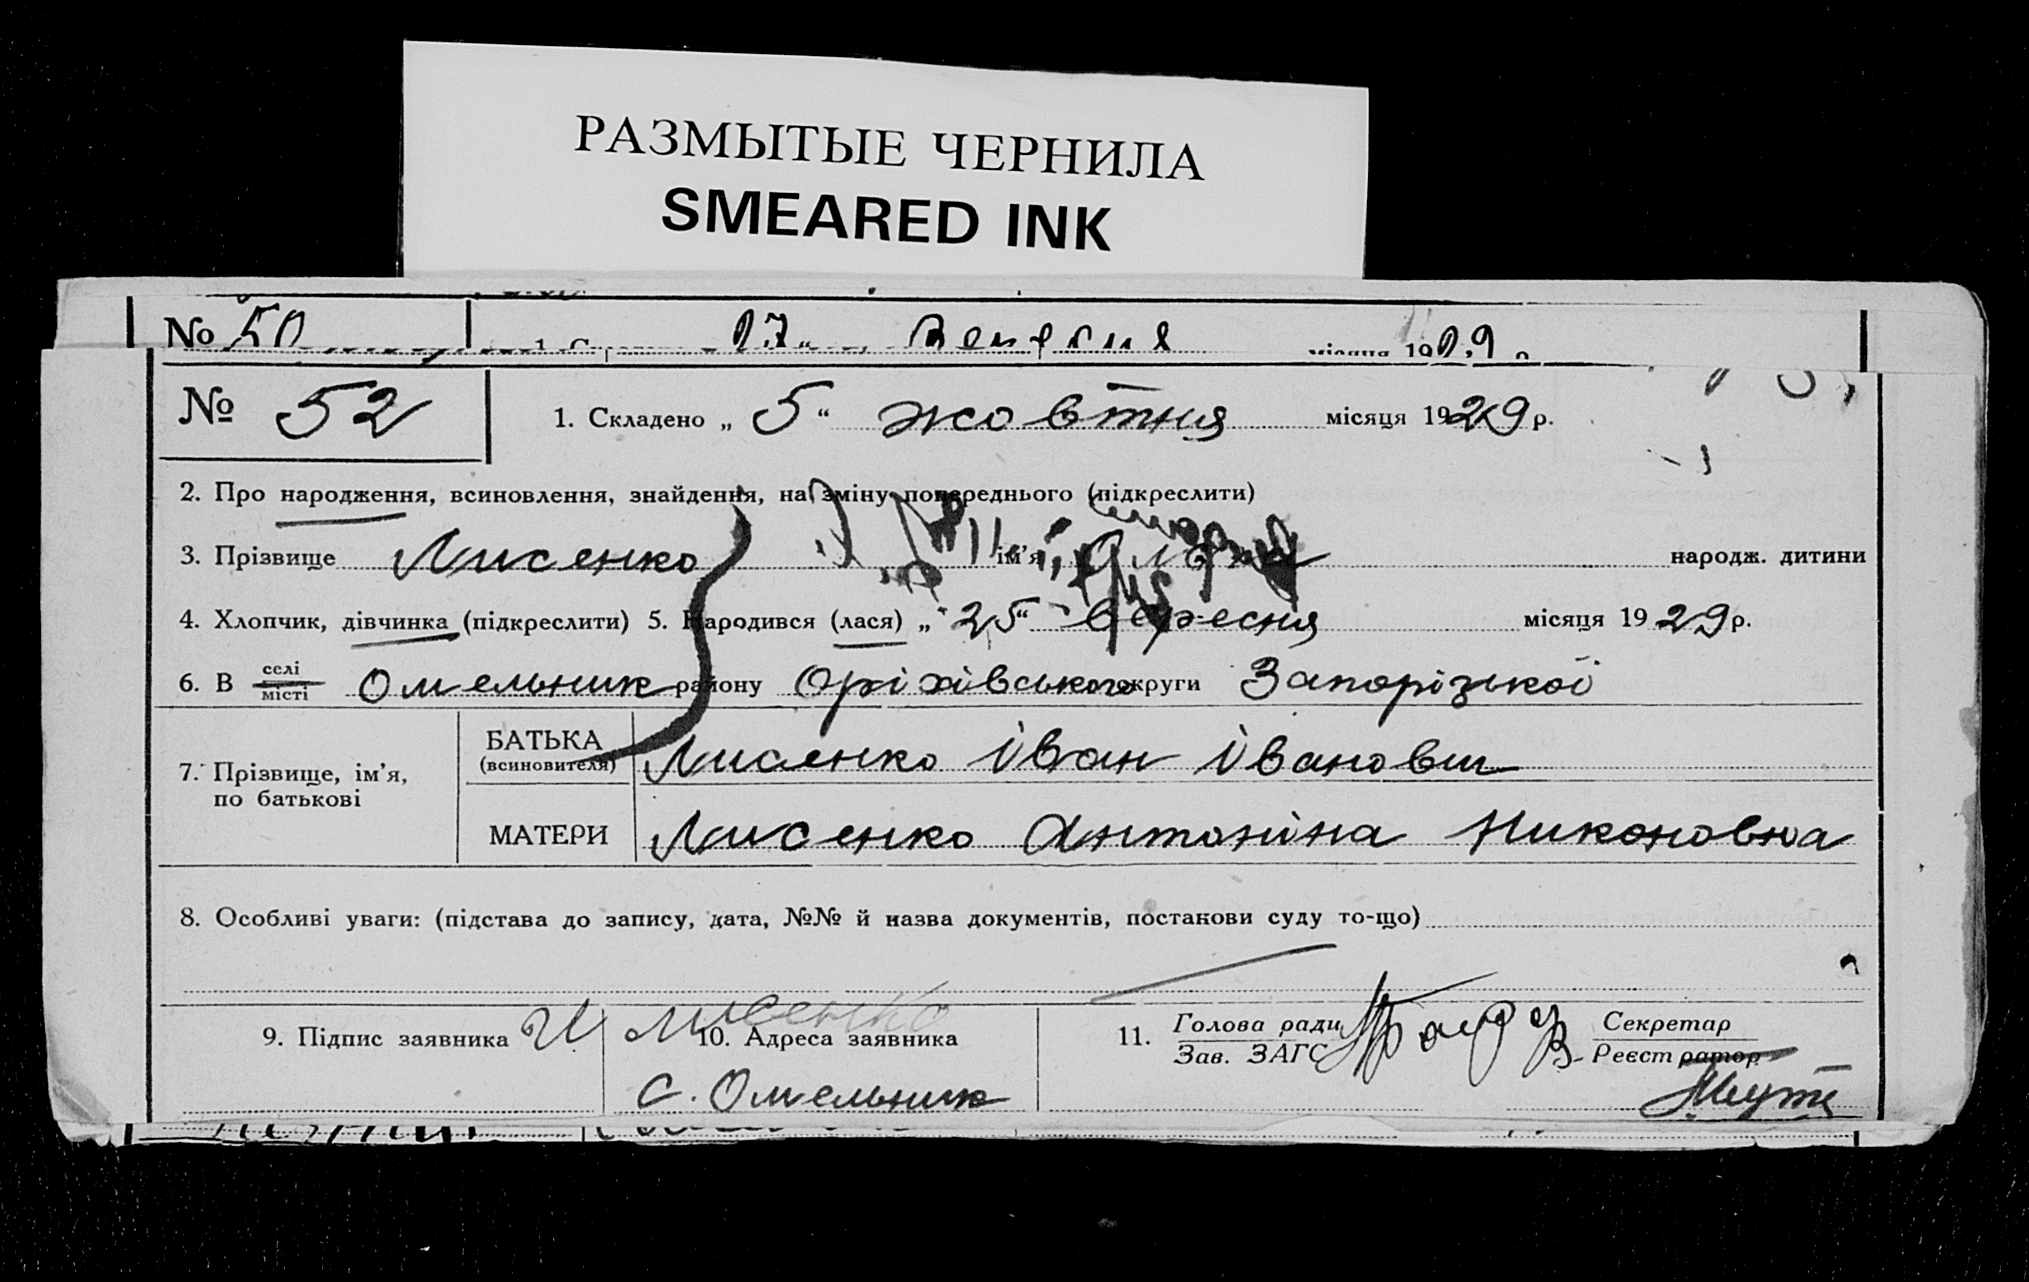 РАЗМЫТЫЕ ЧЕРНИЛА
SMEARED INK
№ 50 місяця 1929 р
№ 52 1. Складено „ 5 “ жовтня місяця 1929 р.
2. Про народження, всиновлення, знайдення, на зміну попереднього (підкреслити)
3. Прізвище Лисенко ім’я народж. дитини
4. Хлопчик, дівчинка (підкреслити) 5. Народився (лася) „ 25 “ вересня місяця 1929 р.
6. В селі
місті Омельник району Оріхівського округи Запорізької
7. Прізвище, ім’я,
по батькові
БАТЬКА
(всиновителя) Лисенко Іван Іванович
МАТЕРИ Лисенко Антоніна Никоновна
8. Особливі уваги: (підстава до запису, дата, №№ й назва документів, постанови суду то-що)
9. Підпис заявника И Лисенко
10. Адреса заявника
с. Омельник
11. Голова ради
Зав. ЗАГС
Секретар
Реєстратор